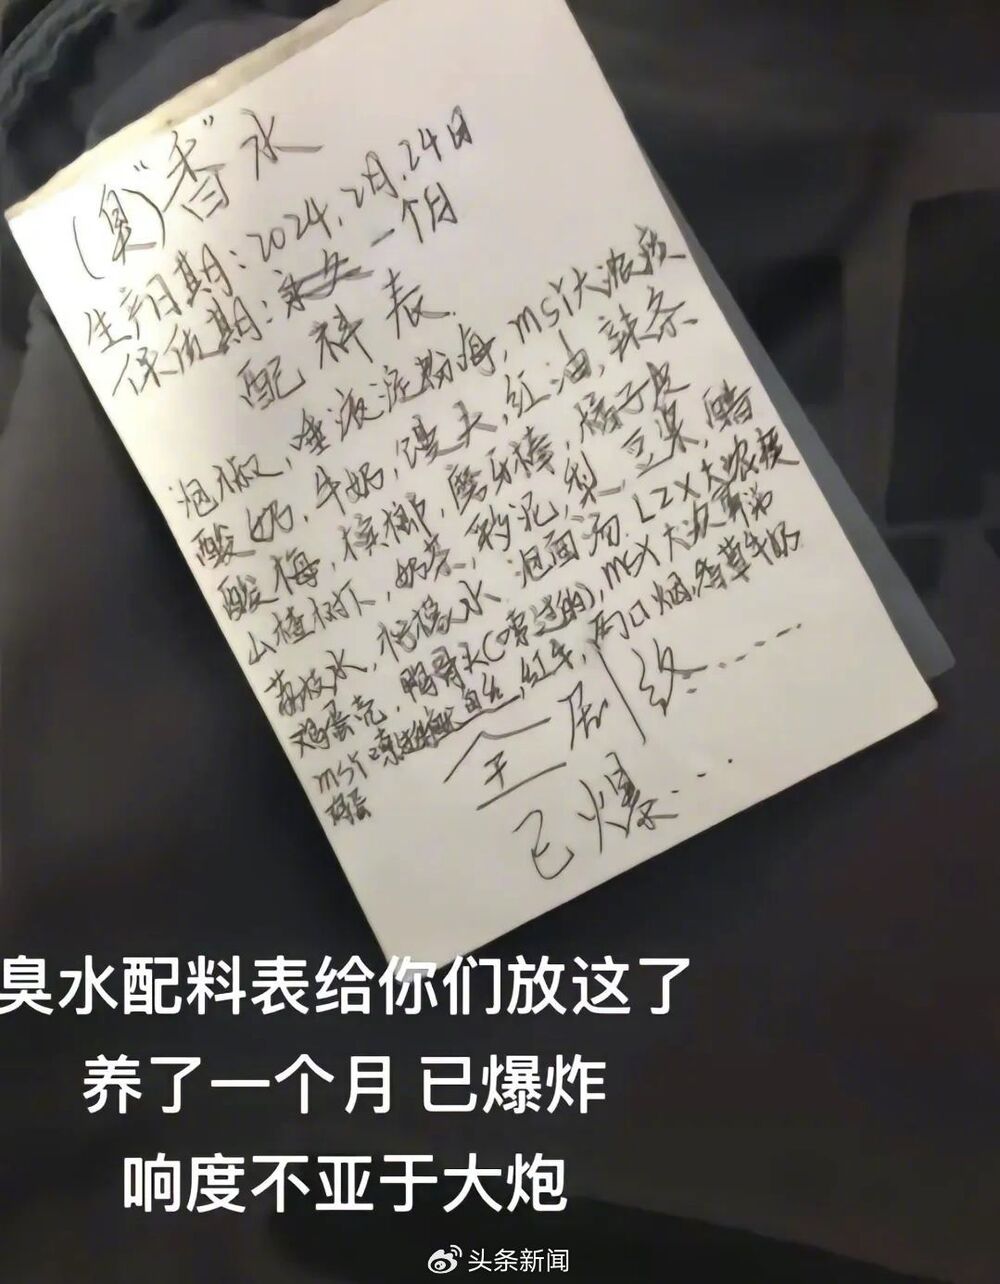 (臭)"香"水
生产日期:2024,2月,24日
保质期: 一个月
配料表
泡椒,唾液淀粉海,msY大浓痰
酸奶,牛奶,馒头,红油,辣条
酸梅,槟榔,磨牙棒,橘子皮
山楂树下,奶茶,秒泥,梨,豆浆,醋
荔枝水,柠檬水,泡面汤,LZX大浓痰
鸡蛋壳,鸭骨头(啃过的),mcX大浓鼻涕
msY 红牛, 口烟,香草牛奶
全剧终......
已爆.....
臭水配料表给你们放这了
养了一个月 已爆炸
响度不亚于大炮
头条新闻